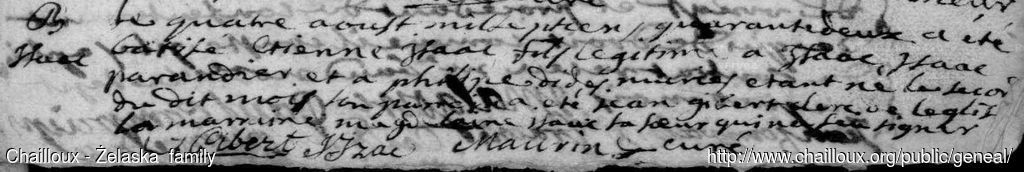 B
Isaac
le quatre aoust mil sept cen quarantedeux a eté
batisé Etienne Isaac fils legitime a Isaac Isaac
parandier et a phil didé mariés etant né le secon
du dit mois son parrein a eté jean gibert clerc de leglise
la marraine magdeleine Isaac sa sœur qui na sceu signer
Gibert Isac Maurin curé
Chailloux - Želaska family
http://www.chailloux.org/public/geneal/